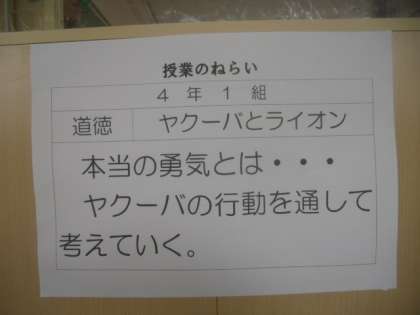 授業のねらい
４年１組
道徳 ヤクーバとライオン
本当の勇気とは・・・
ヤクーバの行動を通して
考えていく。